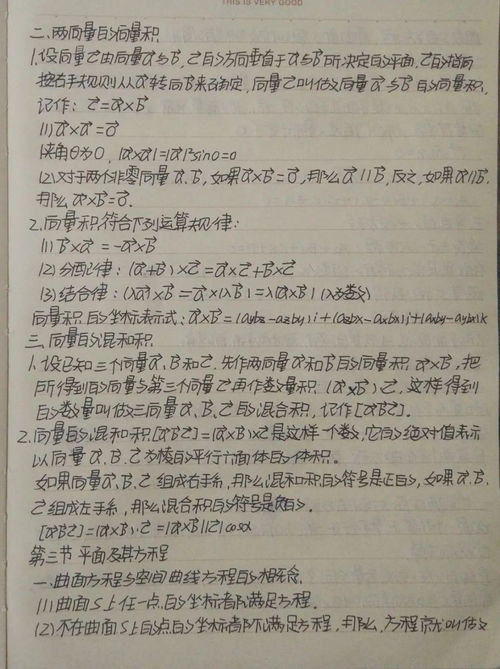 THIS IS VERY GOOD
二、两向量的向量积
1.设向量c⃗由向量a⃗与b⃗,c⃗的方向垂直于a⃗与b⃗所决定的平面,c⃗的指向
按右手规则从a⃗转向b⃗来确定,向量c⃗叫做向量a⃗与b⃗的向量积,
记作:c⃗=a⃗×b⃗
(1)a⃗×a⃗=0⃗
夹角θ为0,|a⃗×a⃗|=|a⃗|²sin0=0
(2)对于两个非零向量a⃗.b⃗,如果a⃗×b⃗=0⃗,那么a⃗∥b⃗,反之,如果a⃗∥b⃗,
那么a⃗×b⃗=0⃗.
2.向量积符合下列运算规律:
(1)b⃗×a⃗=-a⃗×b⃗
(2)分配律:(a⃗+b⃗)×c⃗=a⃗×c⃗+b⃗×c⃗
(3)结合律:(λa⃗)×b⃗=a⃗×(λb⃗)=λ(a⃗×b⃗)(λ为数)
向量积的坐标表示式:a⃗×b⃗=(aybz-azby)i+(azbx-axbz)j+(axby-aybx)k
三、向量的混和积.
1.设已知三个向量a⃗、b⃗和c⃗.先作两向量a⃗和b⃗的向量积a⃗×b⃗,把
所得到的向量与第三个向量c⃗再作数量积(a⃗×b⃗)c⃗,这样得到
的数量叫做三向量a⃗、b⃗、c⃗的混合积,记作[a⃗b⃗c⃗].
2.向量的混和积[a⃗b⃗c⃗]=(a⃗×b⃗)×c⃗是这样一个数,它的绝对值表示
以向量a⃗、b⃗、c⃗为棱的平行六面体的体积。
如果向量a⃗、b⃗、c⃗组成右手系,那么混和积的符号是正的,如果a⃗、b⃗、
c⃗组成左手系,那么混合积的符号是负的。
[a⃗b⃗c⃗]=(a⃗×b⃗)·c⃗=|a⃗×b⃗||c⃗|cosα
第三节 平面及其方程
一、曲面方程与空间曲线方程的概念.
(1)曲面S上任一点的坐标都满足方程.
(2)不在曲面S上的点的坐标都不满足方程,那么,方程就叫做